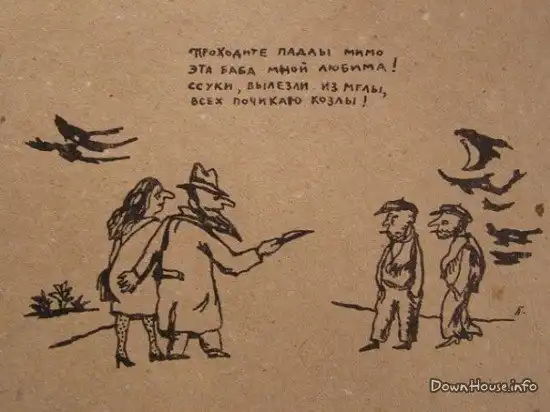 ПРОХОДИТЕ ПАДЛЫ МИМО
ЭТА БАБА МНОЙ ЛЮБИМА!
ССУКИ, ВЫЛЕЗЛИ ИЗ МГЛЫ,
ВСЕХ ПОЧИКАЮ КОЗЛЫ!
DownHouse.info